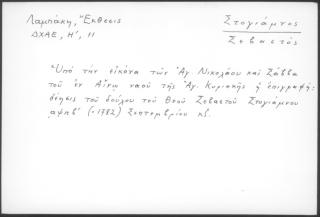 Λαμπάκη, Ἔκθεσις
ΔΧΑΕ, Η', 11
Στογιάμνος
Σεβαστός
"Ὑπό τήν εἰκόνα τῶν Ἁγ. Νικολάου καί Σάββα
τοῦ ἐν Αἴνῳ ναοῦ τῆς Ἁγ. Κυριακῆς ἡ ἐπιγραφή:
δέησις τοῦ δούλου τοῦ Θεοῦ Σεβαστοῦ Στογιάμνου
αψπβ' (=1782) Σεπτεμβρίου κδ.